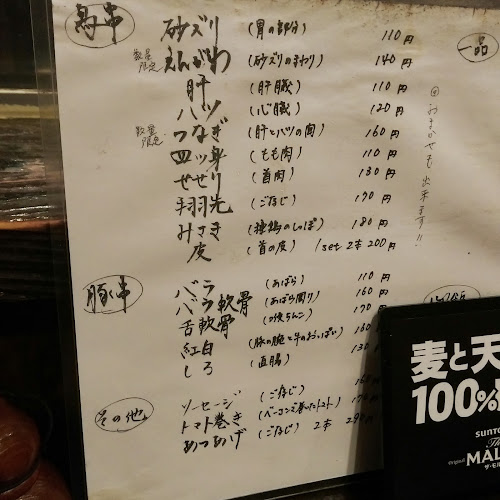 鳥串
砂ズリ (胃の部分) 110円
数量限定 えんがわ (砂ズリのまわり) 140円
肝 (肝臓) 110円
ハツ (心臓) 120円
数量限定 つなぎ (肝とハツの間) 160円
四ッ身 (もも肉) 110円
せせり (首肉) 130円
手羽先 (ごなじ) 170円
みさき (種鶏のしっぽ) 180円
皮 (首の皮) 1set 2本 200円
豚串
バラ (あばら) 110円
バラ軟骨 (あばら周り) 160円
舌軟骨 170円
紅白 160
しろ (直腸) 130
その他
ソーセージ (ごなじ)
トマト巻き (ベーコンで巻いたトマト)
あつあげ (ごなじ) 2本
一品
おまかせも出来ます!!
麦と天
100%
SUNTO
The
MAL